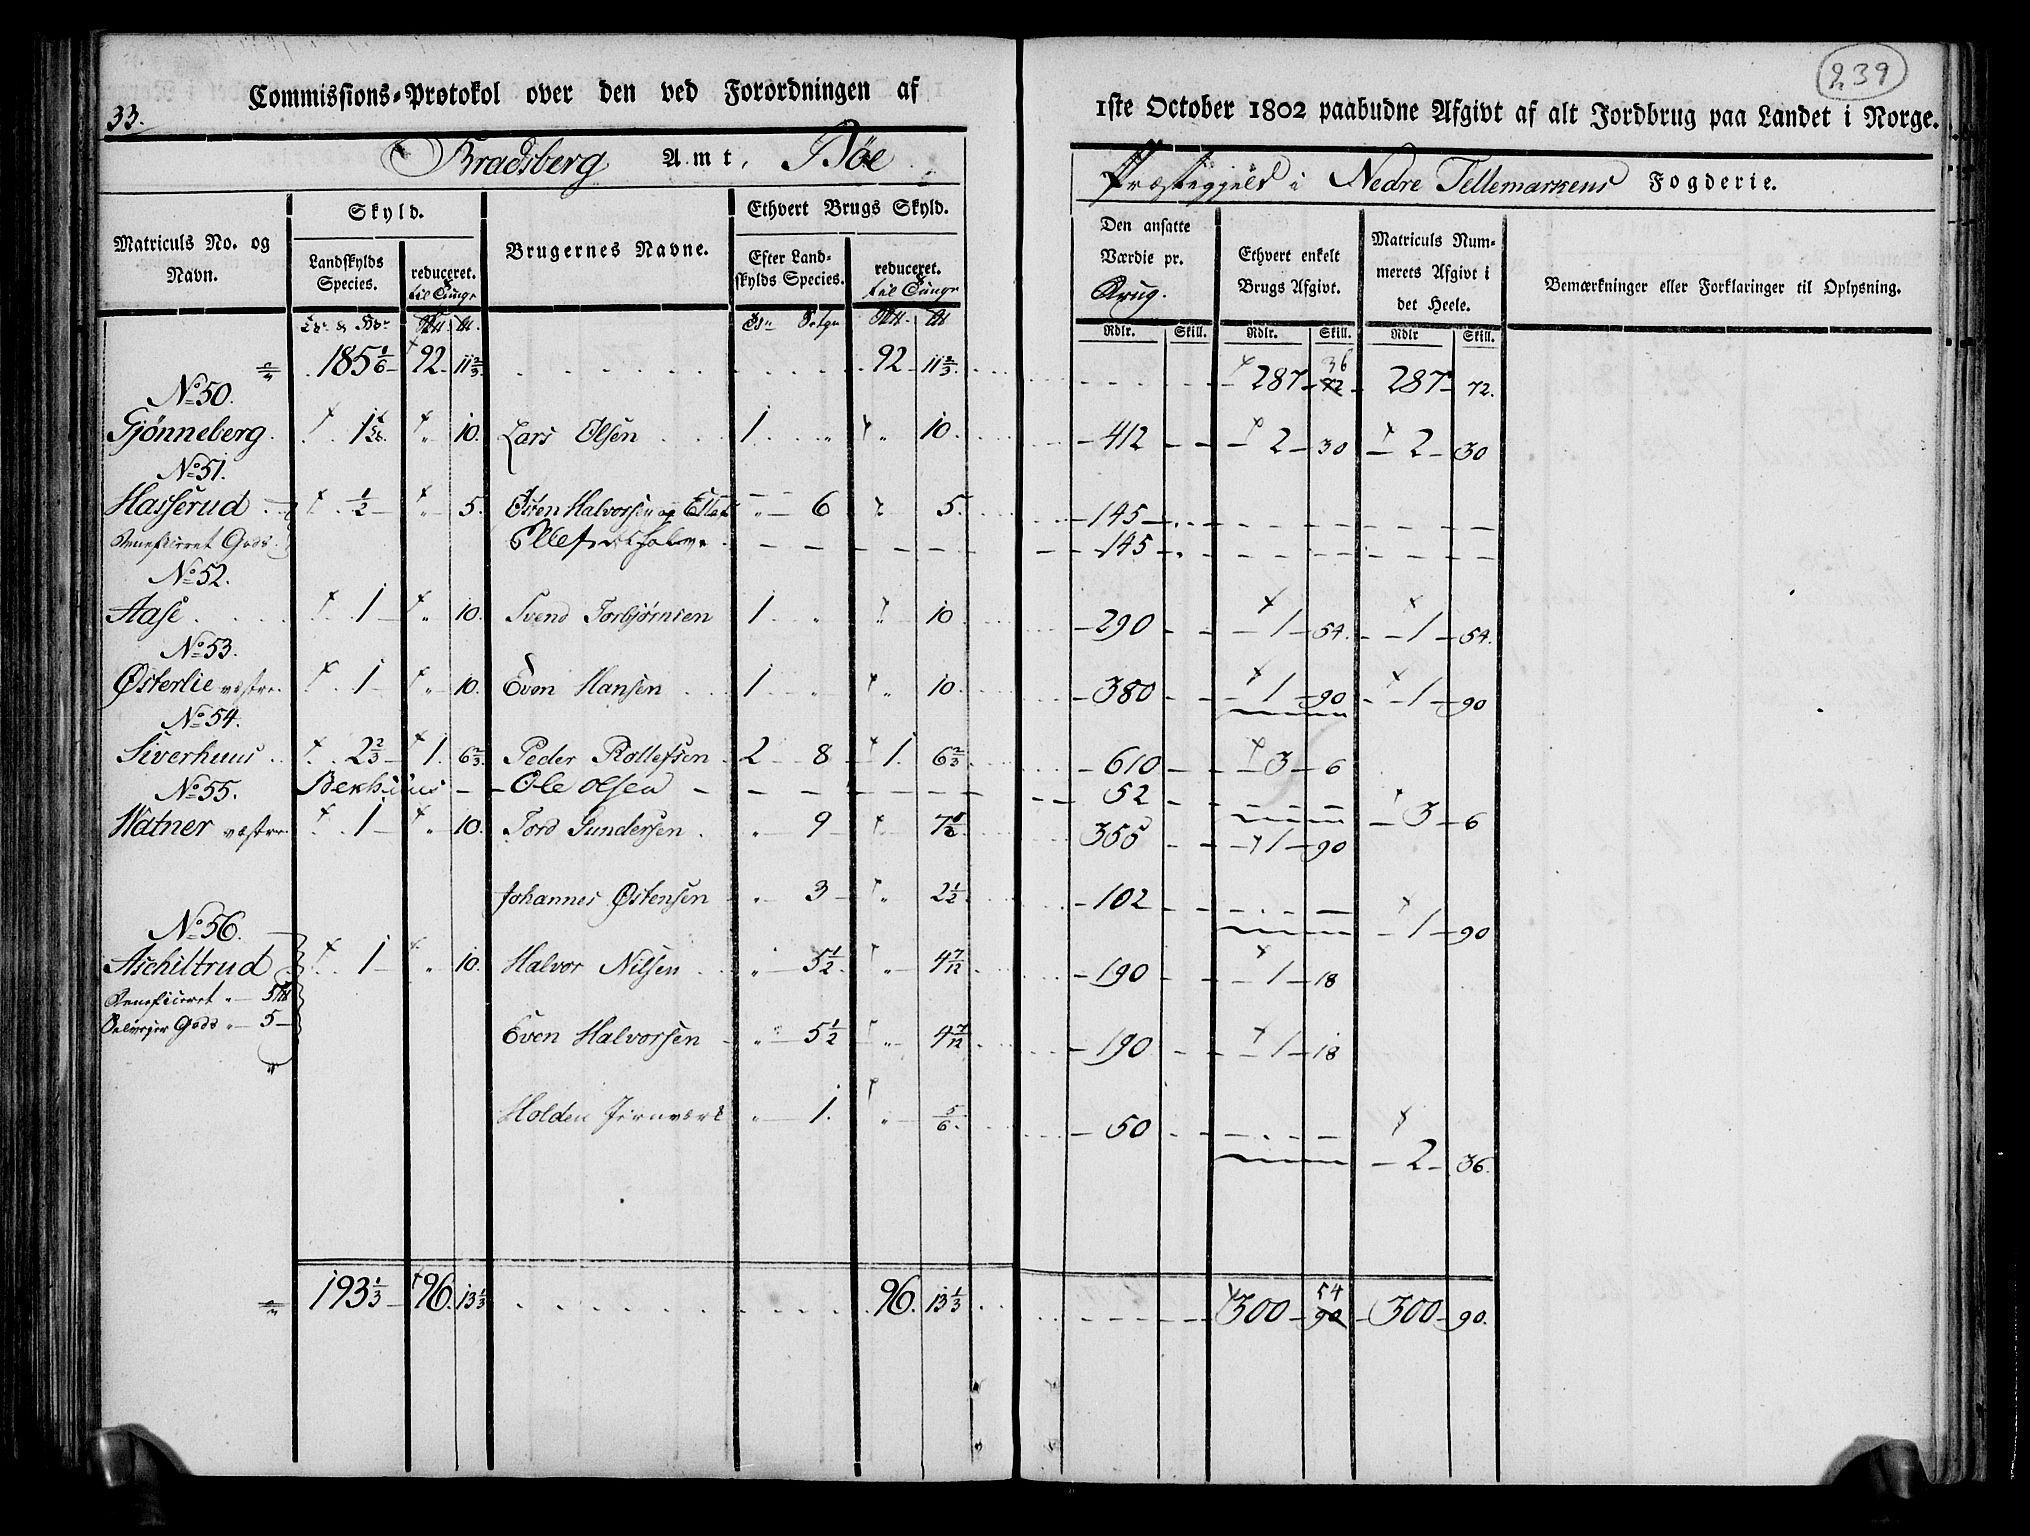 Commissions-Protokol over den ved Forordningen af
1ste October 1802 paabudne Afgivt af alt Jordbrug paa Landet i Norge.
33.
239
Bradsberg Amt, Böe
Præstegjeld i Nedre Tellemarkens Fogderie.
Matriculs No. og Navn.
Skyld.
Landskylds Species.
reduceret. til Tunge
Brugernes Navne.
Ethvert Brugs Skyld.
Efter Landskylds Species.
reduceret. til Tunge
Den ansatte Værdie pr. Brug.
Ethvert enkelt Brugs Afgivt.
Matriculs Nummerets Afgivt i det Heele.
Bemærkninger eller Forklaringer til Oplysning.
Rdlr. Skill. Rdlr. Skill. Rdlr Skill.
185 1/6 92 11 2/3 92 11 2/3 287 36 72 287 72.
No 50.
Gjönneberg 1 10. Lars Olsen 1 " 10. 412 2 30 2 30
No 51.
Hasserud 1/2 " 5. Even Halvorsen og " 6 5. 145
Beneficeret Gods 145
No 52.
Aase 1 " 10. Svend Torbjørnsen 1 " 10 290 1 54. 1 54.
No 53.
Østerlie væstre 1 " 10. Even Hansen 1 " 10. 380 1 90 1 90
No 54.
Siverhuus 2 2/3 1. 6 2/3. Peder Rollefsen 2 8 1. 6 2/3 610 3 6
Bekhuus Ole Olsen 52 3 6
No 55.
Watner væstre 1 " 10. Tord Gundersen " 9 7 1/2 355 1 90
Johannes Østensen " 3 " 2 1/2 102 1 90
No 56.
Aschiltrud 1 " 10. Halvor Nilsen " 5 1/2 " 4 7/12 190 1 18
Beneficeret " 5
Gods " 5
Even Halvorsen " 5 1/2 " 4 7/12 190 1 18
Holden Jernværk " 1. " 5/6. 50 2 36.
193 1/3 96. 13 1/3 96. 13 1/3 300 54 90 300 90.